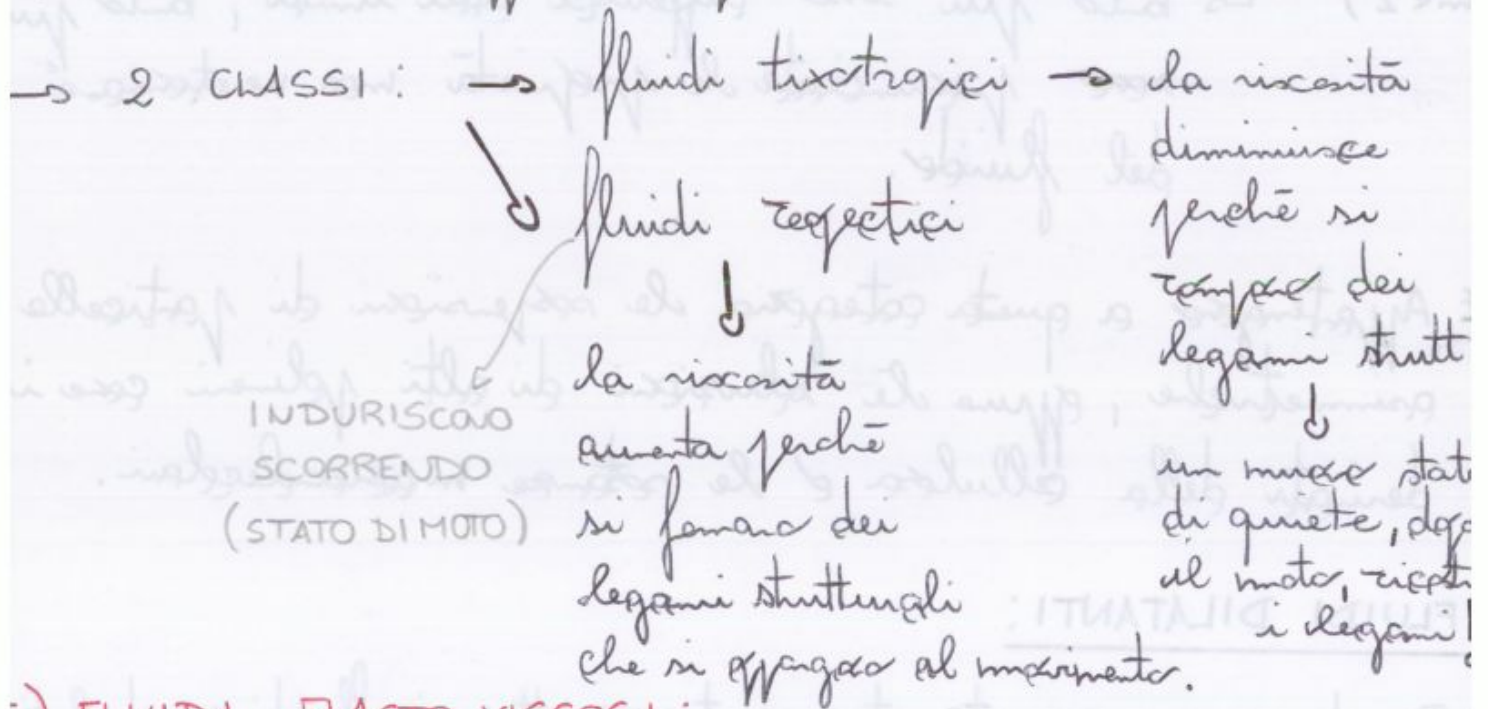 → 2 CLASSI: → fluidi tixotropici → la viscosità
diminuisce
perchē si
rompono dei
legami strutt
↓
un nuovo stat
di quiete, dopo
il moto, ricost
i legami
fluidi reopectici
↓
la viscosità
aumenta perchē
si formano dei
legami strutturali
che si oppongono al movimento.
INDURISCONO
SCORRENDO
(STATO DI MOTO)
FLUIDI ELASTO-VISCOSI: